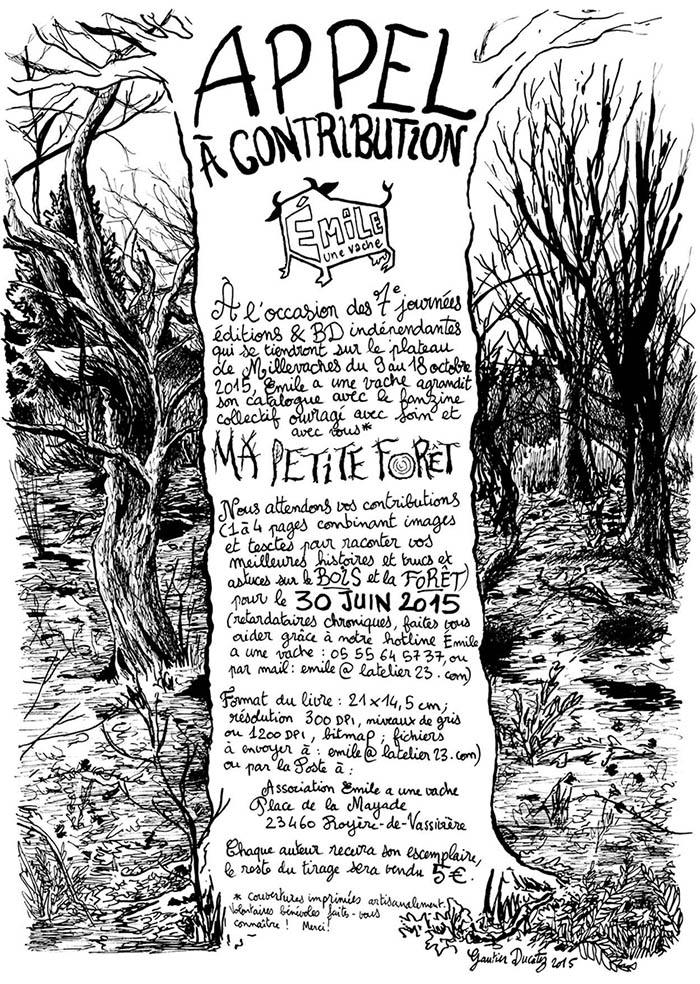 APPEL
À CONTRIBUTION
ÉMILE
une vache
À l'occasion des 7e journées
éditions & BD indénendantes
qui se tiendront sur le plateau
de Millevaches du 9 au 18 octobre
2015, Emile a une vache agrandit
son catalogue avec le fanzine
collectif ouvragé avec soin et
avec vous*
MA PETITE FORÊT
Nous attendons vos contributions
(1 à 4 pages combinant images
et textes pour raconter vos
meilleures histoires et trucs et
astuces sur le BOIS et la FORÊT)
pour le 30 JUIN 2015
(retardataires chroniques, faites vous
aider grâce à notre hotline Emile
a une vache : 05 55 64 57 37, ou
par mail : emile@latelier23.com)
Format du livre : 21 x 14,5 cm ;
résolution 300 DPI, niveaux de gris
ou 1200 DPI, bitmap ; fichiers
à envoyer à : emile@latelier23.com)
ou par la Poste à :
Association Emile a une vache
Place de la Mayade
23460 Royère-de-Vassivière
Chaque auteur recevra son exemplaire,
le reste du tirage sera vendu 5€.
* couvertures imprimées artisanalement.
Volontaires bénévoles faites-vous
connaître ! Merci !
Gautier Ducatez 2015